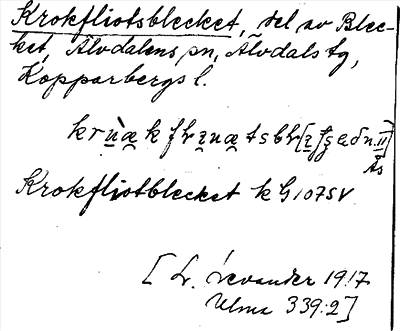 Krokfliotsblecket, del av Blec-
ket, Älvdalens sn, Älvdals tg,
Kopparbergs l.
Krokfliotblecket k G 107 SV
[L. Levander 1917
Ulma 339:2]